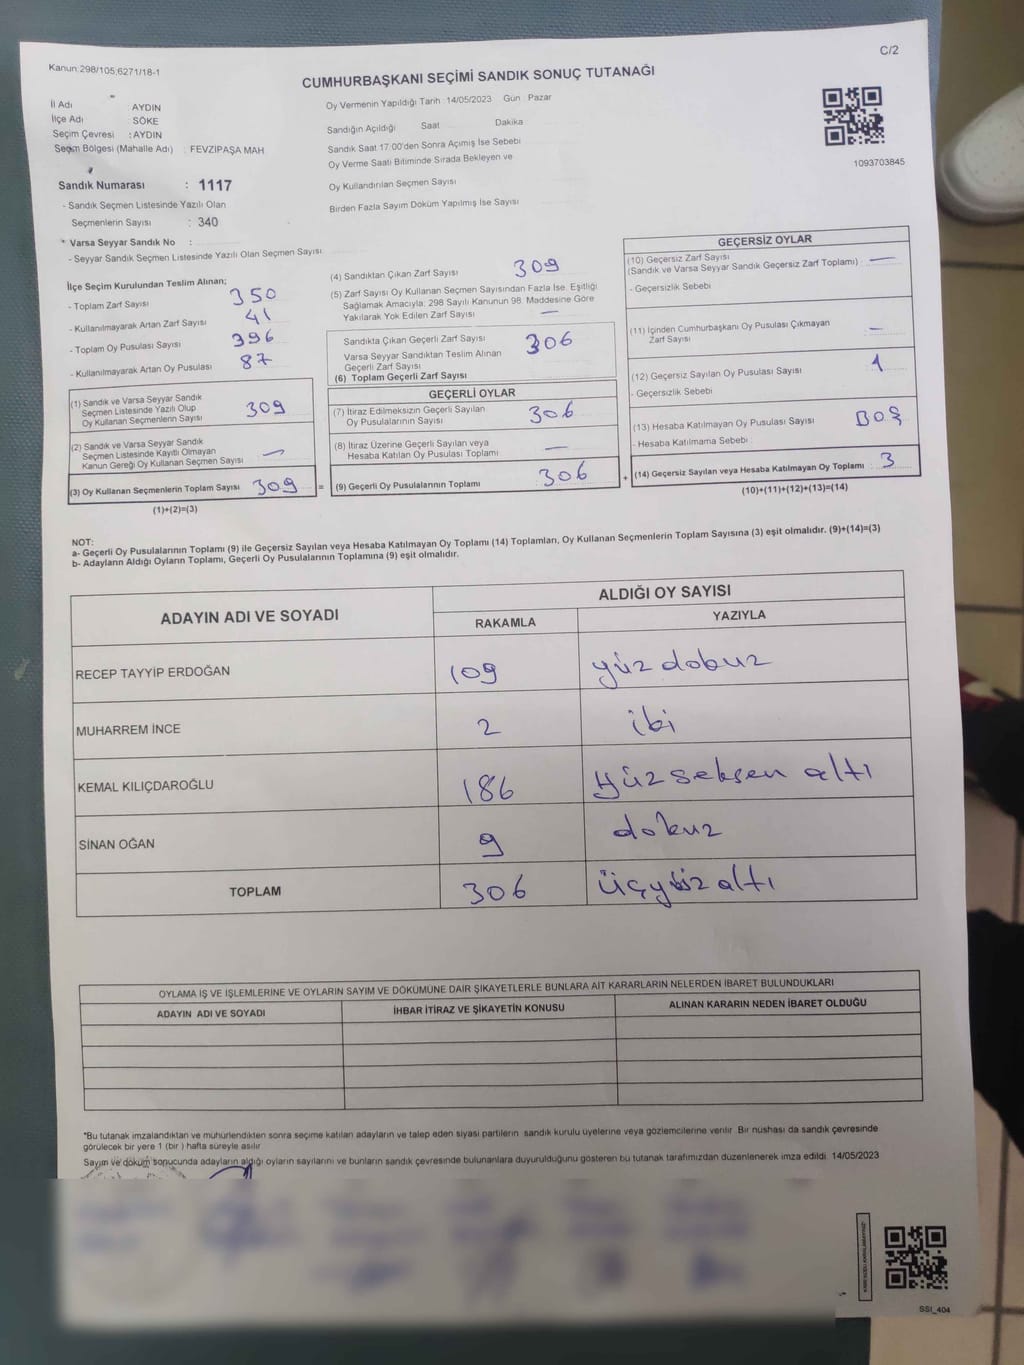 C/2
Kanun:298/105;6271/18-1
CUMHURBAŞKANI SEÇİMİ SANDIK SONUÇ TUTANAĞI
İl Adı : AYDIN
İlçe Adı : SÖKE
Seçim Çevresi : AYDIN
Seçim Bölgesi (Mahalle Adı) : FEVZİPAŞA MAH
Oy Vermenin Yapıldığı Tarih : 14/05/2023 Gün : Pazar
Sandığın Açıldığı Saat Dakika
Sandık Saat 17:00'den Sonra Açımış İse Sebebi
Oy Verme Saati Bitiminde Sırada Bekleyen ve
Oy Kullandırılan Seçmen Sayısı
Birden Fazla Sayım Döküm Yapılmış İse Sayısı
1093703845
Sandık Numarası : 1117
- Sandık Seçmen Listesinde Yazılı Olan
Seçmenlerin Sayısı : 340
* Varsa Seyyar Sandık No :
- Seyyar Sandık Seçmen Listesinde Yazılı Olan Seçmen Sayısı
İlçe Seçim Kurulundan Teslim Alınan;
- Toplam Zarf Sayısı 350
- Kullanılmayarak Artan Zarf Sayısı 41
- Toplam Oy Pusulası Sayısı 396
- Kullanılmayarak Artan Oy Pusulası 87
(1) Sandık ve Varsa Seyyar Sandık
Seçmen Listesinde Yazılı Olup
Oy Kullanan Seçmenlerin Sayısı 309
(2) Sandık ve Varsa Seyyar Sandık
Seçmen Listesinde Kayıtlı Olmayan
Kanun Gereği Oy Kullanan Seçmen Sayısı —
(3) Oy Kullanan Seçmenlerin Toplam Sayısı 309 =
(1)+(2)=(3)
(4) Sandıktan Çıkan Zarf Sayısı 309
(5) Zarf Sayısı Oy Kullanan Seçmen Sayısından Fazla İse, Eşitliği
Sağlamak Amacıyla; 298 Sayılı Kanunun 98. Maddesine Göre
Yakılarak Yok Edilen Zarf Sayısı —
Sandıkta Çıkan Geçerli Zarf Sayısı 306
Varsa Seyyar Sandıktan Teslim Alınan
Geçerli Zarf Sayısı
(6) Toplam Geçerli Zarf Sayısı
GEÇERLİ OYLAR
(7) İtiraz Edilmeksizin Geçerli Sayılan
Oy Pusulalarının Sayısı 306
(8) İtiraz Üzerine Geçerli Sayılan veya
Hesaba Katılan Oy Pusulası Toplamı —
(9) Geçerli Oy Pusulalarının Toplamı 306 +
GEÇERSİZ OYLAR
(10) Geçersiz Zarf Sayısı
(Sandık ve Varsa Seyyar Sandık Geçersiz Zarf Toplamı) —
- Geçersizlik Sebebi
(11) İçinden Cumhurbaşkanı Oy Pusulası Çıkmayan
Zarf Sayısı —
(12) Geçersiz Sayılan Oy Pusulası Sayısı 1
- Geçersizlik Sebebi
(13) Hesaba Katılmayan Oy Pusulası Sayısı BOŞ
- Hesaba Katılmama Sebebi
(14) Geçersiz Sayılan veya Hesaba Katılmayan Oy Toplamı 3
(10)+(11)+(12)+(13)=(14)
NOT:
a- Geçerli Oy Pusulalarının Toplamı (9) ile Geçersiz Sayılan veya Hesaba Katılmayan Oy Toplamı (14) Toplamları, Oy Kullanan Seçmenlerin Toplam Sayısına (3) eşit olmalıdır. (9)+(14)=(3)
b- Adayların Aldığı Oyların Toplamı, Geçerli Oy Pusulalarının Toplamına (9) eşit olmalıdır.
ADAYIN ADI VE SOYADI ALDIĞI OY SAYISI
RAKAMLA YAZIYLA
RECEP TAYYİP ERDOĞAN 109 yüz dokuz
MUHARREM İNCE 2 iki
KEMAL KILIÇDAROĞLU 186 Yüz seksen altı
SİNAN OĞAN 9 dokuz
TOPLAM 306 üçyüz altı
OYLAMA İŞ VE İŞLEMLERİNE VE OYLARIN SAYIM VE DÖKÜMÜNE DAİR ŞİKAYETLERLE BUNLARA AİT KARARLARIN NELERDEN İBARET BULUNDUKLARI
ADAYIN ADI VE SOYADI İHBAR İTİRAZ VE ŞİKAYETİN KONUSU ALINAN KARARIN NEDEN İBARET OLDUĞU
*Bu tutanak imzalandıktan ve mühürlendikten sonra seçime katılan adayların ve talep eden siyasi partilerin sandık kurulu üyelerine veya gözlemcilerine verilir. Bir nüshası da sandık çevresinde
görülecek bir yere 1 (bir ) hafta süreyle asılır.
Sayım ve döküm sonucunda adayların aldığı oyların sayılarını ve bunların sandık çevresinde bulunanlara duyurulduğunu gösteren bu tutanak tarafımızdan düzenlenerek imza edildi. 14/05/2023
SSI_404